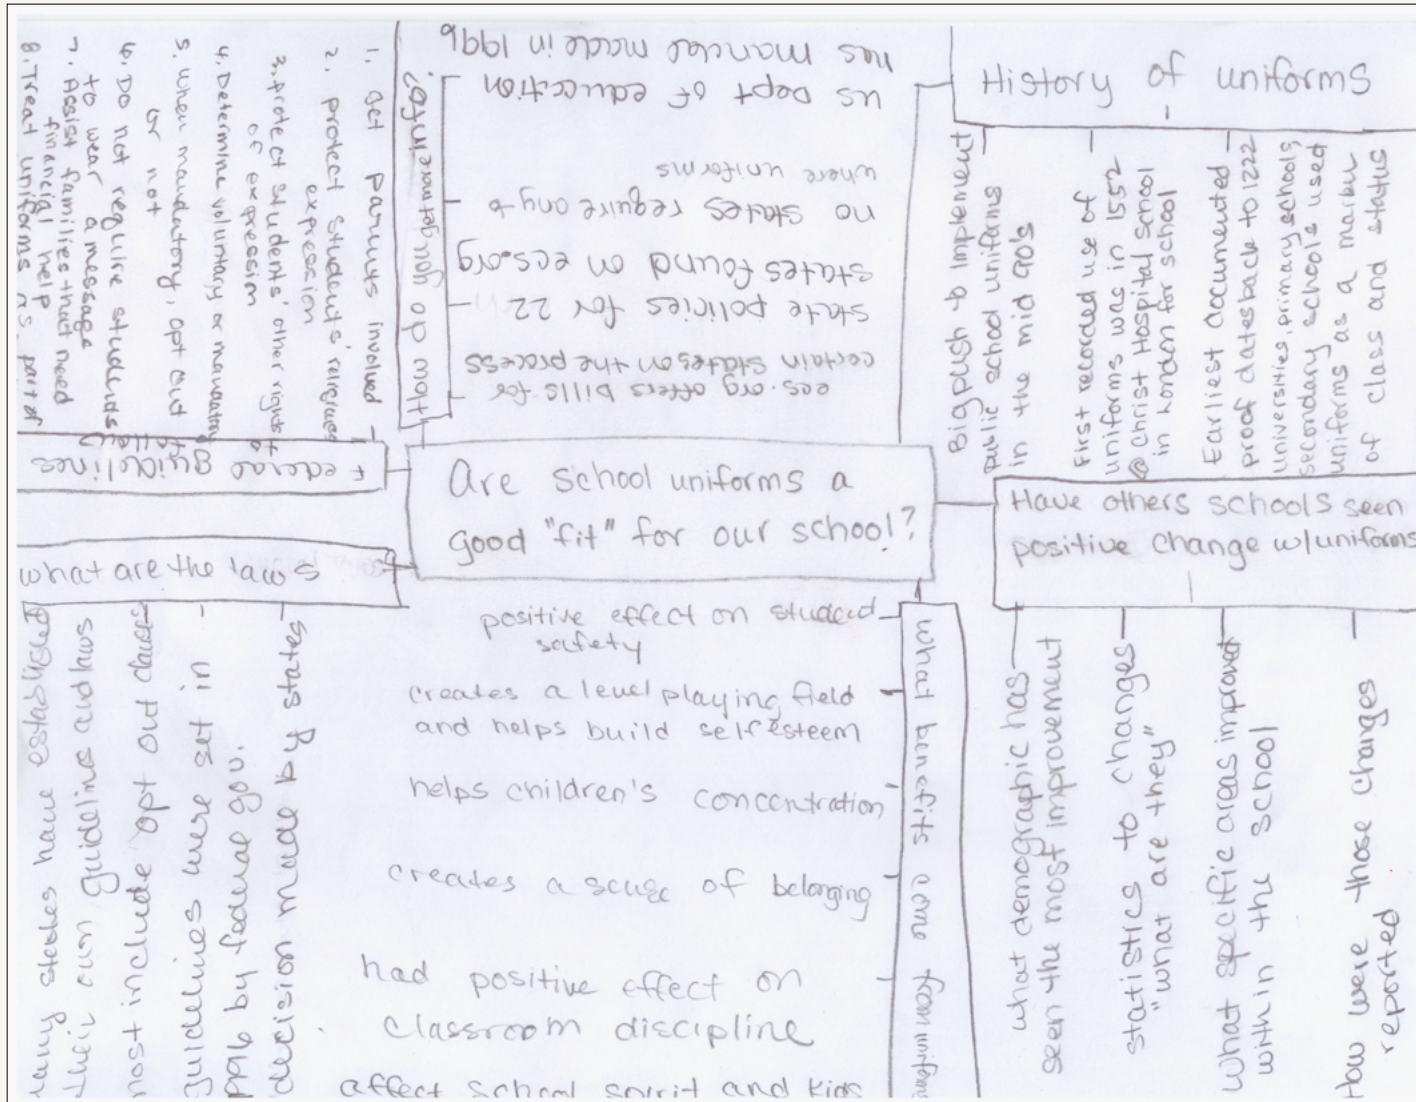 Are school uniforms a
good "fit" for our school?
History of uniforms
Big push to implement
public school uniforms
in the mid 90's
First recorded use of
uniforms was in 1552
@ Christ Hospital school
in London for school
Earliest documented
proof dates back to 1222
universities, primary schools,
secondary schools used
uniforms as a marker
of class and status
Have others schools seen
positive change w/uniforms
what demographic has
seen the most improvement
statistics to changes
"what are they"
What specific areas improved
with in the school
How were those changes
reported
what benefits come from uniforms
positive effect on student
safety
creates a level playing field
and helps build self esteem
helps children's concentration
creates a sense of belonging
had positive effect on
classroom discipline
affect school spirit and kids
what are the laws
decision made by states
guidelines were set in
1996 by federal gov.
most include opt out clauses
many states have established
their own guidelines and laws
Federal guidelines
1. get parents involved
2. protect students' religious
expression
3. protect students' other rights
of expression
4. Determine voluntary or mandatory
5. when mandatory, opt out
or not
6. Do not require students
to wear a message
7. Assist families that need
financial help
8. Treat uniforms as part of
How do you get more info?
ecs.org offers bills for
certain states on the process
state policies for 22
states found on ecs.org
no states require any to
where uniforms
us Dept of education
has manual made in 1996